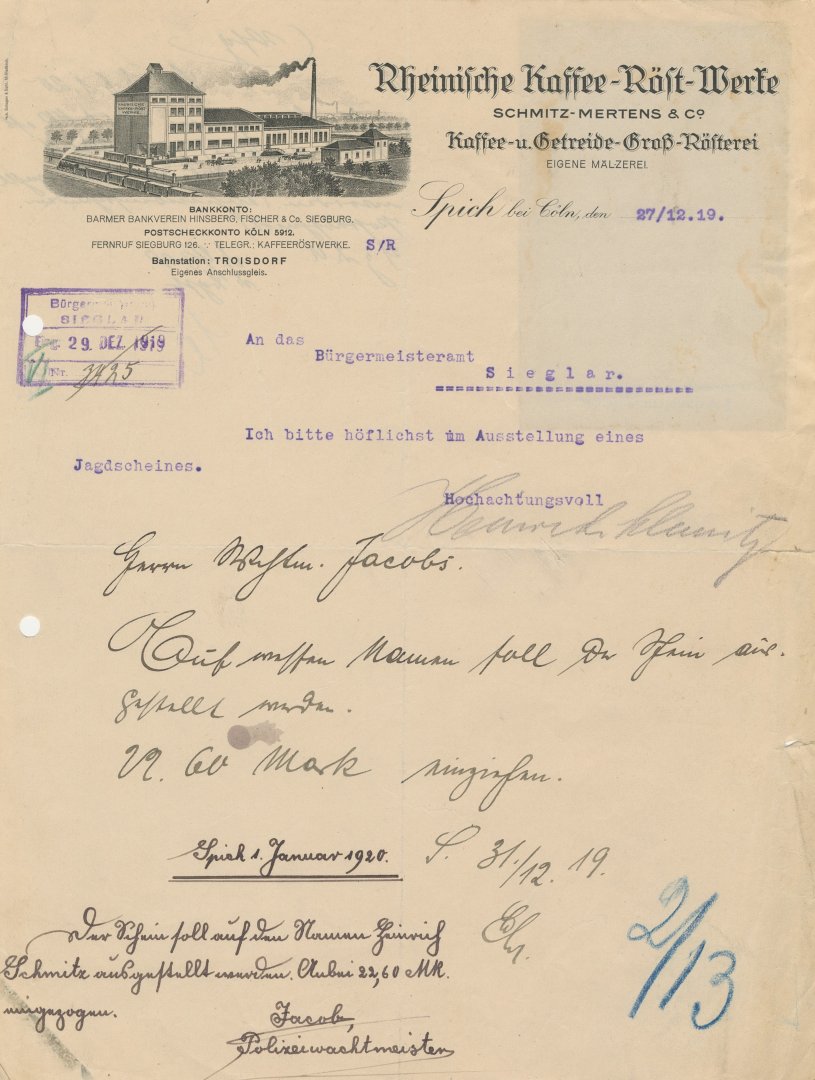 Rheinische Kaffee-Röst-Werke
SCHMITZ-MERTENS & Co
Kaffee-u. Getreide-Groß-Rösterei
EIGENE MÄLZEREI.
RHEINISCHE
KAFFEE-RÖST
WERKE
BANKKONTO:
BARMER BANKVEREIN HINSBERG, FISCHER & Co. SIEGBURG.
POSTSCHECKKONTO KÖLN 5912.
FERNRUF SIEGBURG 126. TELEGR.: KAFFEERÖSTWERKE. S/R
Bahnstation: TROISDORF
Eigenes Anschlussgleis.
Spich bei Cöln, den 27/12.19.
SIEGLAR
29 DEZ. 1919
Nr. 3425
An das
Bürgermeisteramt
Sieglar.
Ich bitte höflichst um Ausstellung eines
Jagdscheines.
Hochachtungsvoll
Heinrich Schmitz
Herrn Wchtm. Jacobs.
Auf wessen Namen soll der Schein aus-
gestellt werden.
22.60 Mark einziehen.
S. 31./12.19.
Spich 1. Januar 1920.
Der Schein soll auf den Namen Heinrich
Schmitz ausgestellt werden. Anbei 22,60 Mk.
eingezogen.
Jacobs,
Polizeiwachtmeister
2/13